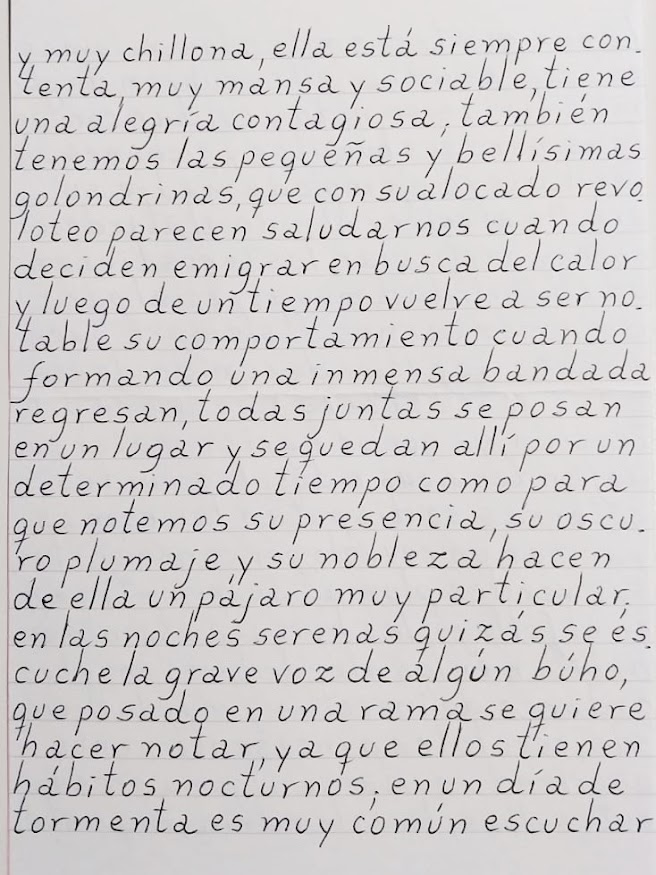 y muy chillona, ella está siempre con.
tenta, muy mansa y sociable, tiene
una alegría contagiosa; también
tenemos las pequeñas y bellísimas
golondrinas, que con su alocado revo.
loteo parecen saludarnos cuando
deciden emigrar en busca del calor
y luego de un tiempo vuelve a ser no.
table su comportamiento cuando
formando una inmensa bandada
regresan, todas juntas se posan
en un lugar y se quedan allí por un
determinado tiempo como para
que notemos su presencia, su oscu.
ro plumaje y su nobleza hacen
de ella un pájaro muy particular;
en las noches serenas quizás se es.
cuche la grave voz de algún búho,
que posado en una rama se quiere
hacer notar, ya que ellos tienen
hábitos nocturnos; en un día de
tormenta es muy común escuchar